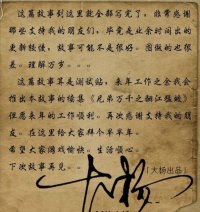 这篇故事到这里就全部写完了,非常感谢
那些支持我的朋友们,毕竟是业余时间出的
更新较慢,故事可能不是很好。图做的也很
差。理解万岁。---
这篇故事算是测试贴,来年工作之余我会
推出本故事的续集《兄弟万千之翻江强蛟》
但愿来年的工作顺利。再次感谢支持我的朋
友。在这里给大家拜个早年。
希望大家游戏愉快。生活顺心。
下次故事再见。---
「大杨出品」
大杨